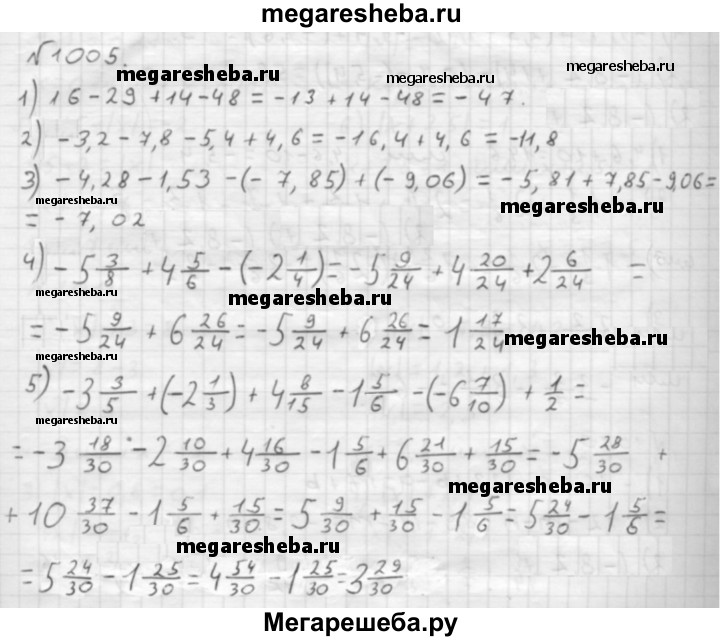 megaresheba.ru
№1005.
megaresheba.ru
megaresheba.ru
megaresheba.ru
1) 16 - 29 + 14 - 48 = -13 + 14 - 48 = - 47.
2) -3,2 - 7,8 - 5,4 + 4,6 = -16,4 + 4,6 = -11,8
3) -4,28 - 1,53 - (- 7,85) + (- 9,06) = - 5,81 + 7,85 - 9,06 =
megaresheba.ru
megaresheba.ru
= - 7,02
4) -5 3/8 + 4 5/6 - (-2 1/4) = -5 9/24 + 4 20/24 + 2 6/24 =
megaresheba.ru
megaresheba.ru
= -5 9/24 + 6 26/24 = -5 9/24 + 6 26/24 = 1 17/24
megaresheba.ru
5) -3 3/5 + (-2 1/3) + 4 8/15 - 1 5/6 - (-6 7/10) + 1/2 =
megaresheba.ru
= -3 18/30 - 2 10/30 + 4 16/30 - 1 5/6 + 6 21/30 + 15/30 = -5 28/30 +
megaresheba.ru
+ 10 37/30 - 1 5/6 + 15/30 = 5 9/30 + 15/30 - 1 5/6 = 5 24/30 - 1 5/6 =
megaresheba.ru
= 5 24/30 - 1 25/30 = 4 54/30 - 1 25/30 = 3 29/30
Мегарешеба.ру